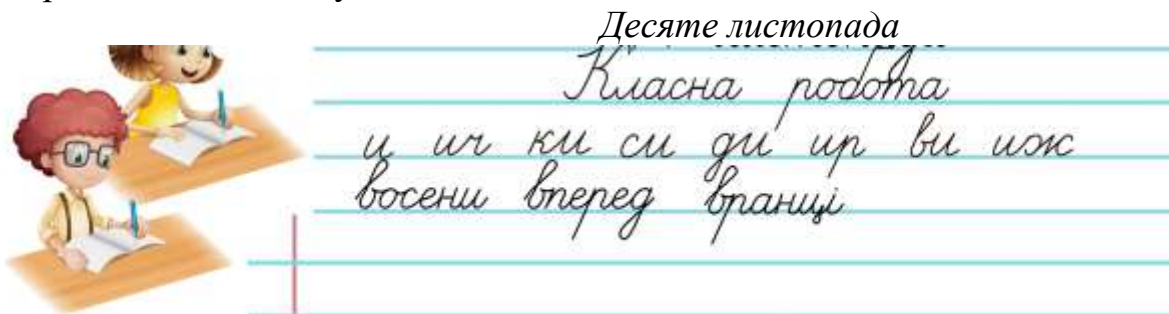 Десяте листопада
Класна робота
и ич ки си ди ир ви иж
восени вперед вранці